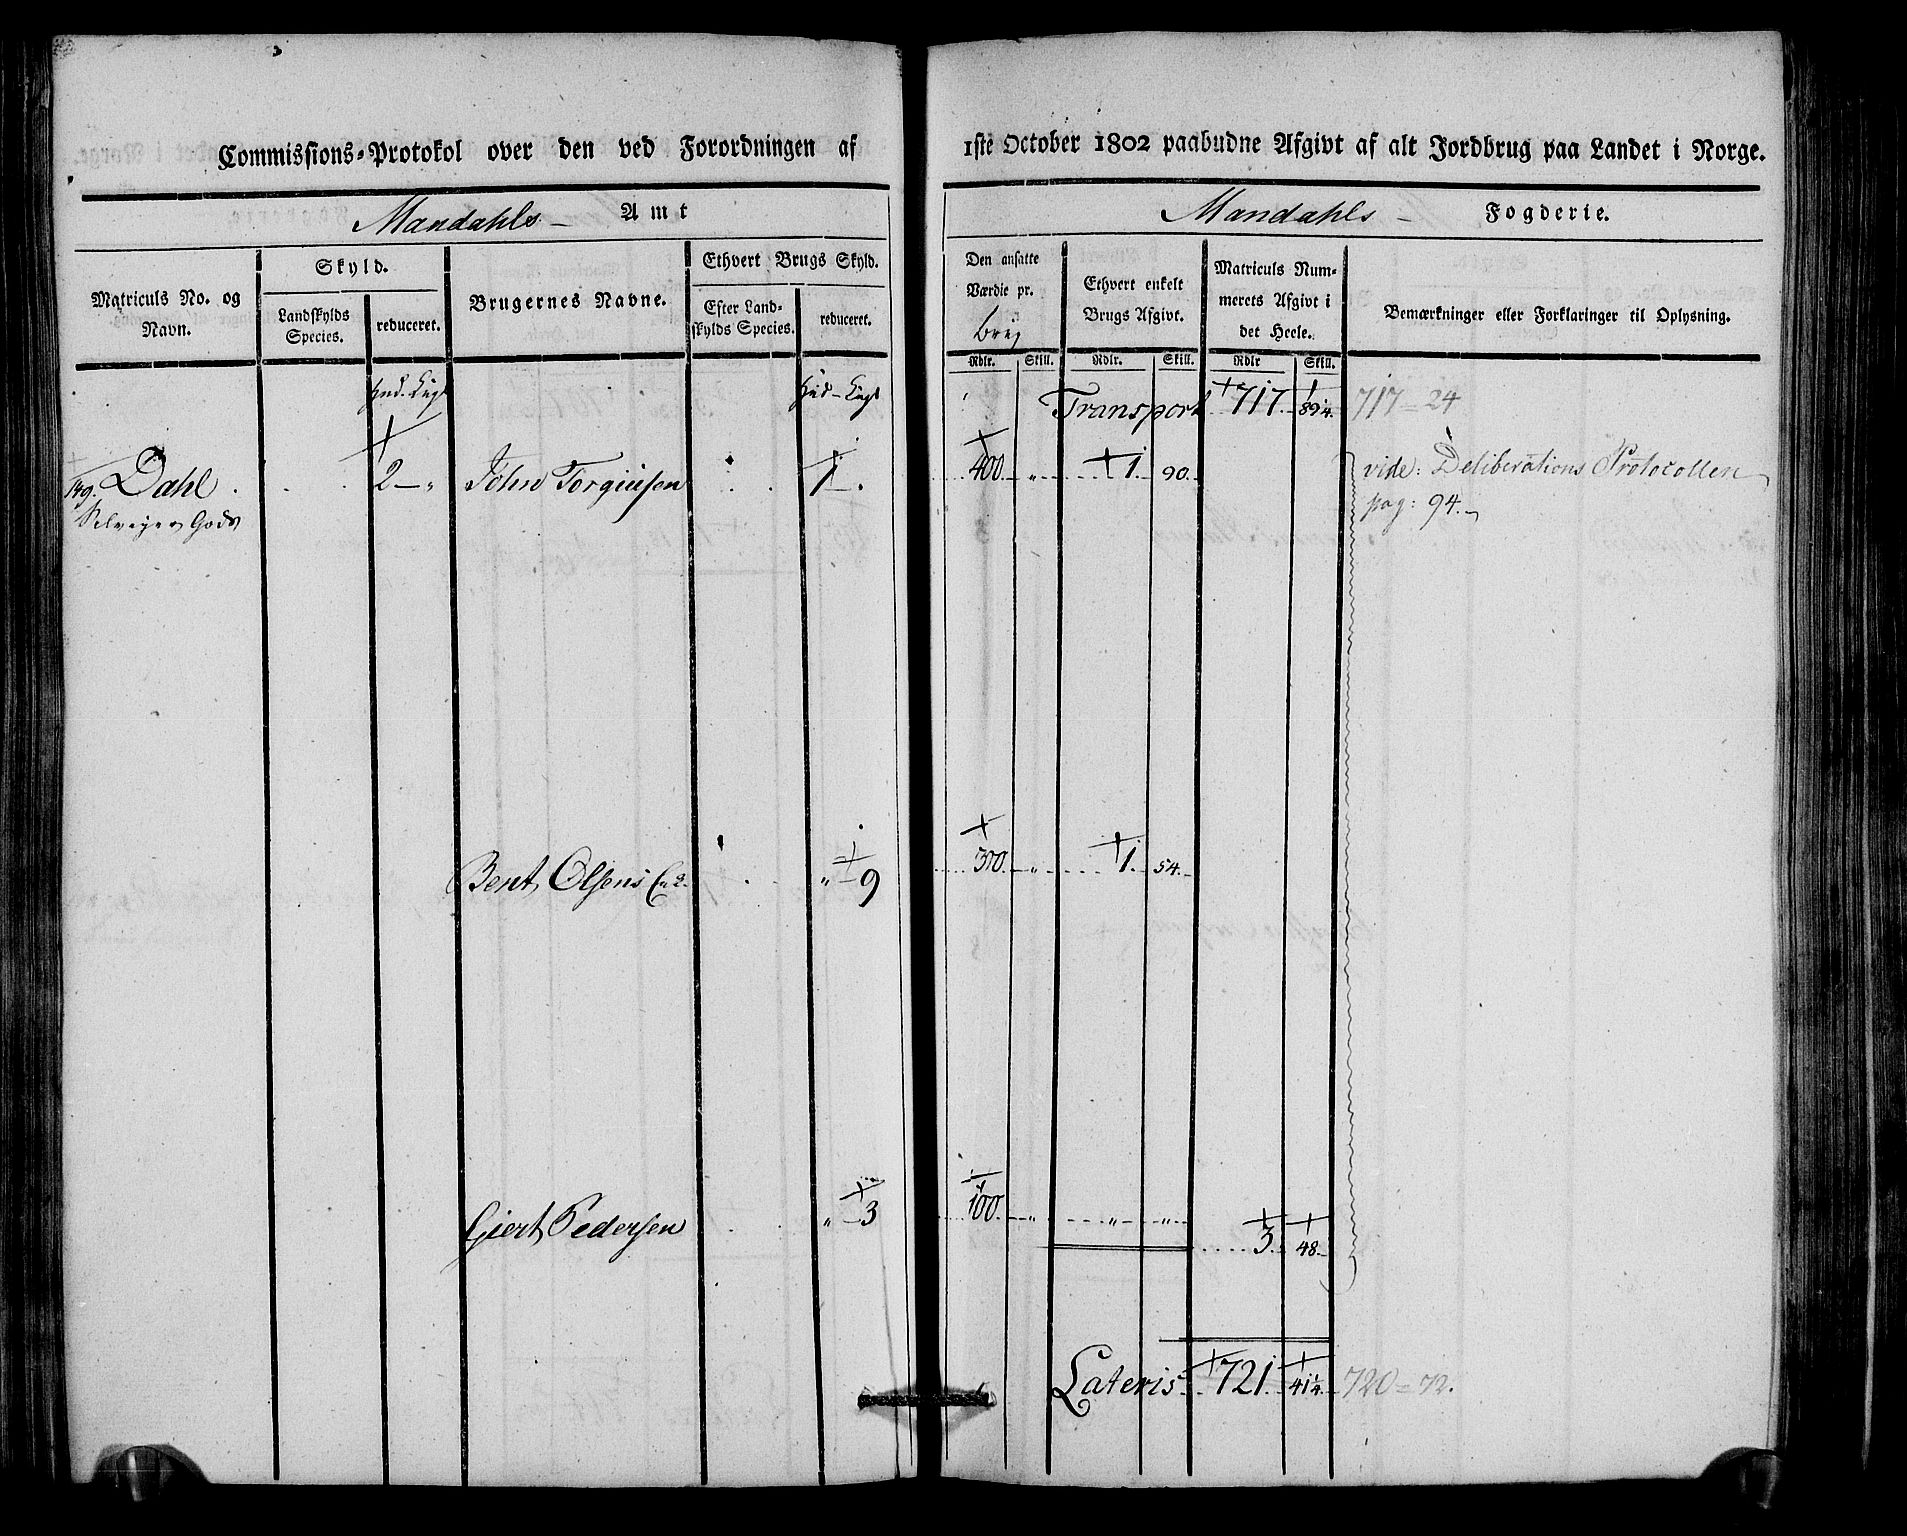 Commissions-Protokol over den ved Forordningen af
1ste October 1802 paabudne Afgivt af alt Jordbrug paa Landet i Norge.
Mandahls - Amt
Mandahls - Fogderie.
Matriculs No. og Navn.
Skyld.
Landskylds Species.
reduceret.
Brugernes Navne.
Ethvert Brugs Skyld.
Efter Landskylds Species.
reduceret.
Den ansatte Værdie pr. brug
Rdlr. Skill.
Ethvert enkelt Brugs Afgivt.
Rdlr. Skill.
Matriculs Nummerets Afgivt i det Heele.
Rdlr Skill.
Bemærkninger eller Forklaringer til Oplysning.
Hud. Eng.
Hud - Eng.
Transport 717. 89 1/4. 717 = 24
149. Dahl 2 - „ John Torgiusen 1 - . 400. „ 1. 90. vide: Deliberations Protocollen
Selveyer Gods
pag: 94.
Bent Olsens „ - 9 300. „ 1. 54.
Giert Pedersen „ - 3 100. „ „ „ 3. 48.
Lateris 721. 41 1/4. 720 = 72.